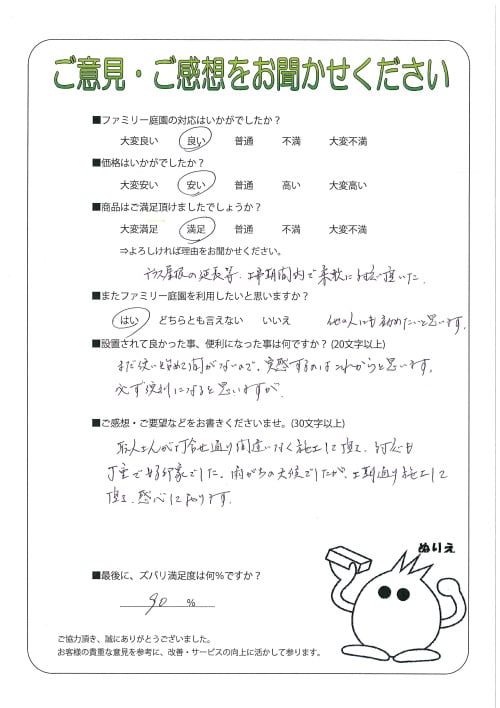 ご意見・ご感想をお聞かせください
■ファミリー庭園の対応はいかがでしたか？
大変良い 良い 普通 不満 大変不満
■価格はいかがでしたか？
大変安い 安い 普通 高い 大変高い
■商品はご満足頂けましたでしょうか？
大変満足 満足 普通 不満 大変不満
⇒よろしければ理由をお聞かせください。
テラス屋根の延長等、工事期間内で柔軟に対応頂いた。
■またファミリー庭園を利用したいと思いますか？
はい どちらとも言えない いいえ 他の人にも勧めたいと思います。
■設置されて良かった事、便利になった事は何ですか？(20文字以上)
まだ使い始めて間がないので、実感するのはこれからと思います。
必ず便利になると思いますが
■ご感想・ご要望などをお書きくださいませ。(30文字以上)
職人さんが打合せ通り間違いなく施工して頂き、対応も
丁重で好印象でした。雨がちの天候でしたが、工期通り施工して
頂き、感心しております。
ぬりえ
■最後に、ズバリ満足度は何％ですか？
90 %
ご協力頂き、誠にありがとうございました。
お客様の貴重な意見を参考に、改善・サービスの向上に活かして参ります。